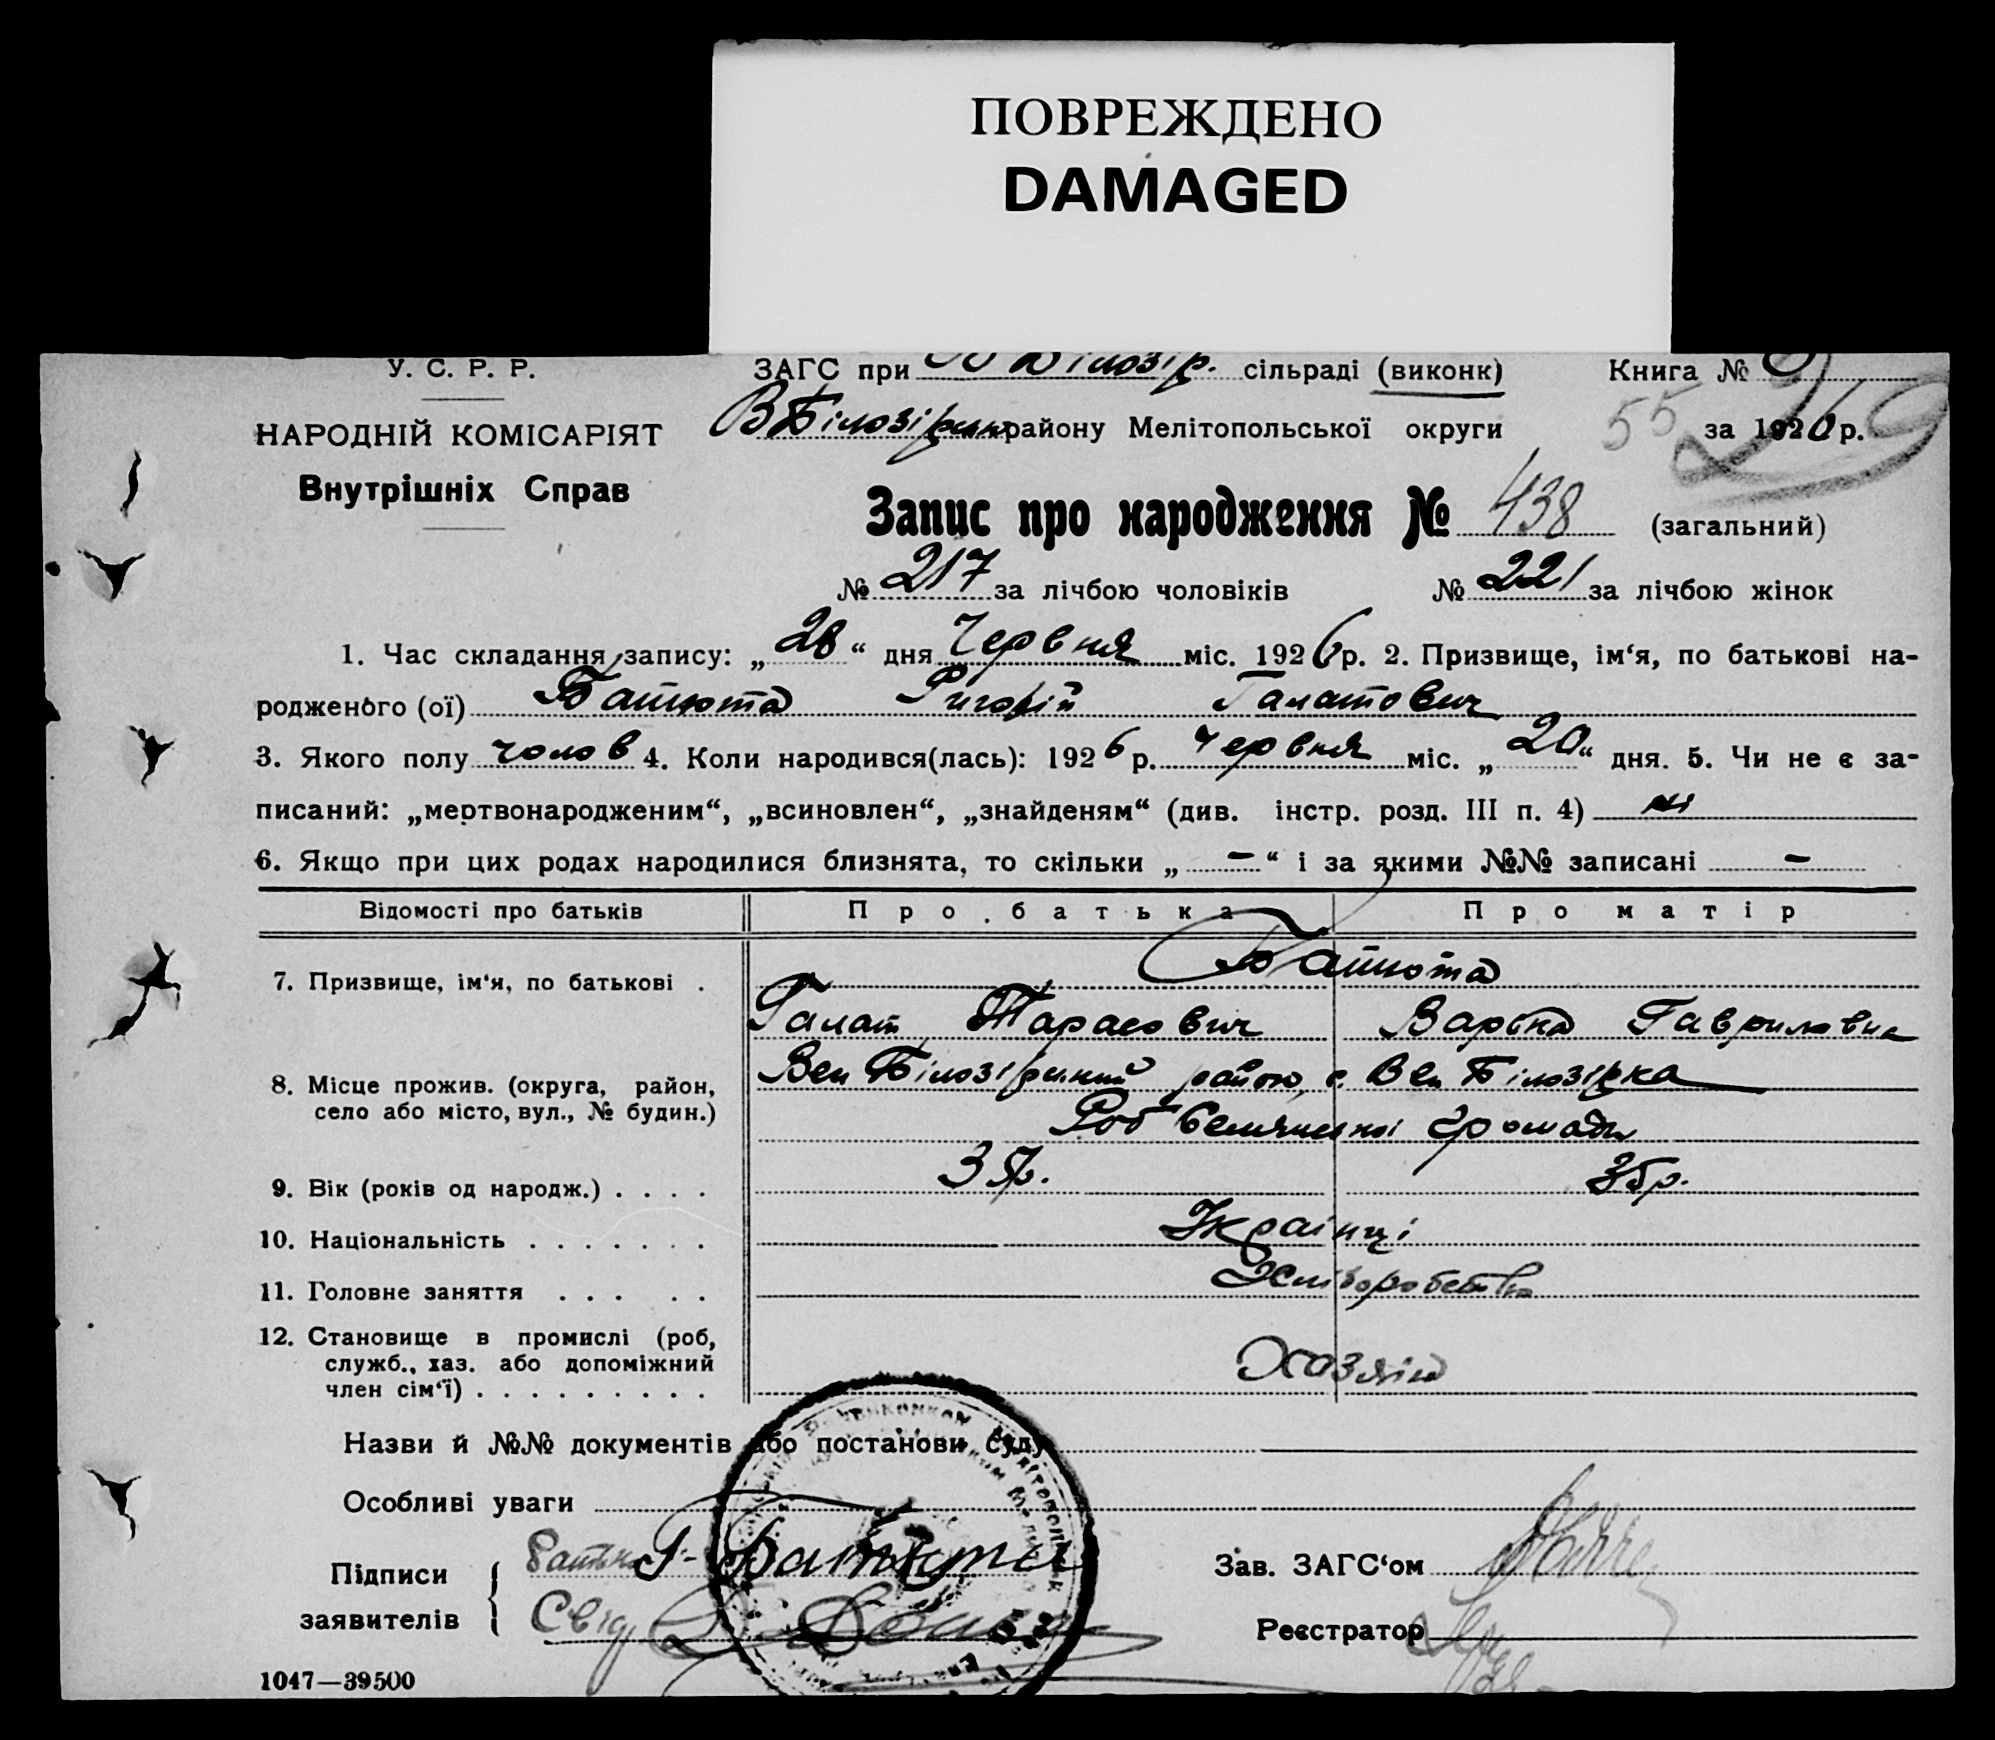 ПОВРЕЖДЕНО
DAMAGED
У. С. Р. Р.
ЗАГС при В Білозір. сільраді (виконк)
Книга №
НАРОДНІЙ КОМІСАРІЯТ
Внутрішніх Справ
В Білозірськ району Мелітопольської округи
55
за 1926 р.
269
Запис про народження № 438 (загальний)
№ 217 за лічбою чоловіків № 221 за лічбою жінок
1. Час складання запису: „28“ дня Червня міс. 1926 р. 2. Призвище, ім‘я, по батькові на-
родженого (ої) Батюта Григорій Галатович
3. Якого полу чолов 4. Коли народився(лась): 1926 р. Червня міс. „20“ дня. 5. Чи не є за-
писаний: „мертвонародженим“, „всиновлен“, „знайденям“ (див. інстр. розд. III п. 4) ні
6. Якщо при цих родах народилися близнята, то скільки „ – “ і за якими №№ записані –
Відомості про батьків Про батька Про матір
Батюта
7. Призвище, ім‘я, по батькові .
Галат Тарасович Варька Гавриловна
8. Місце прожив. (округа, район,
село або місто, вул., № будин.)
Вел Білозірський району с. Вел Білозірка
громади
9. Вік (років од народж.) . . . . 37р. 35р.
10. Національність . . . . . . . Українці
11. Головне заняття . . . . . Хліборобство
12. Становище в промислі (роб,
служб., хаз. або допоміжний
член сім‘ї) . . . . . . . . . Хазяїн
Назви й №№ документів або постанови суду
Особливі уваги
Підписи
заявителів
Батько Г. Батюта
Свід
Зав. ЗАГС‘ом
Реєстратор
1047—39500